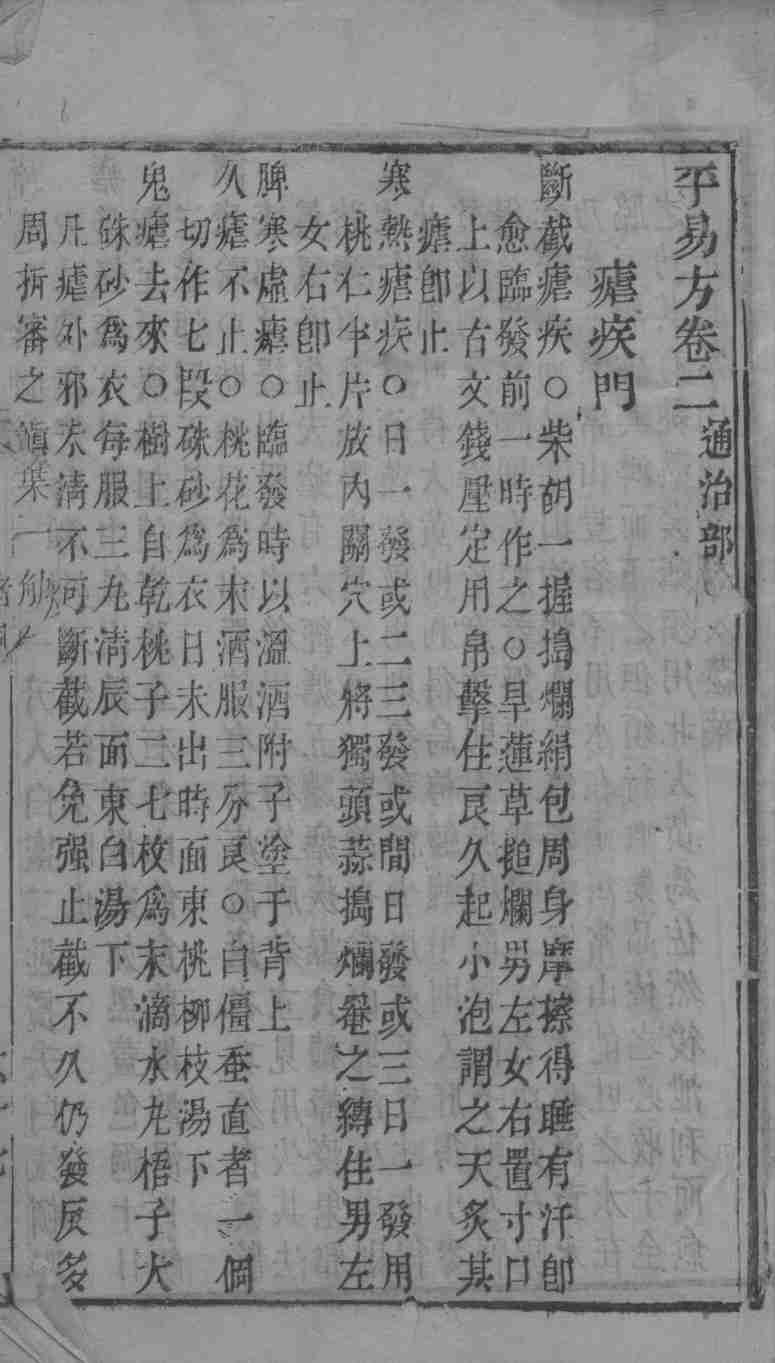 平易方卷二通治部
瘧疾門
斷截瘧疾○柴胡一握搗爛絹包周身摩擦得睡有汗卽
愈臨發前一時作之○旱蓮草搥爛男左女右置寸口
上以古文錢壓定用帛擊住良久起小泡謂之天炙其
瘧卽止
寒熱瘧疾○日一發或二三發或間日發或三日一發用
桃仁半片放內關穴上將獨頭蒜搗爛罨之縛住男左
女右卽止
脾寒虛瘧○臨發時以溫酒附子塗于背上
久瘧不止○桃花爲末酒服三分良○白僵蚕直者一個
切作七段硃砂爲衣日未出時面東桃柳枝湯下
鬼瘧去來○樹上自乾桃子二七枚爲末滴水丸梧子大
硃砂爲衣每服三丸清辰面東白湯下
凡瘧外邪未清不可斷截若免强止截不久仍發反多
周折審之愼